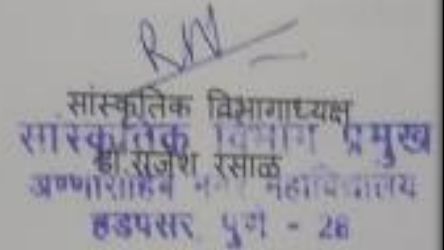 RW
सांस्कृतिक विभागाध्यक्ष
सांस्कृतिक विभाग प्रमुख
डॉ.राजेश रसाळ
अण्णासाहेब मगर महाविद्यालय
हडपसर, पुणे - 28